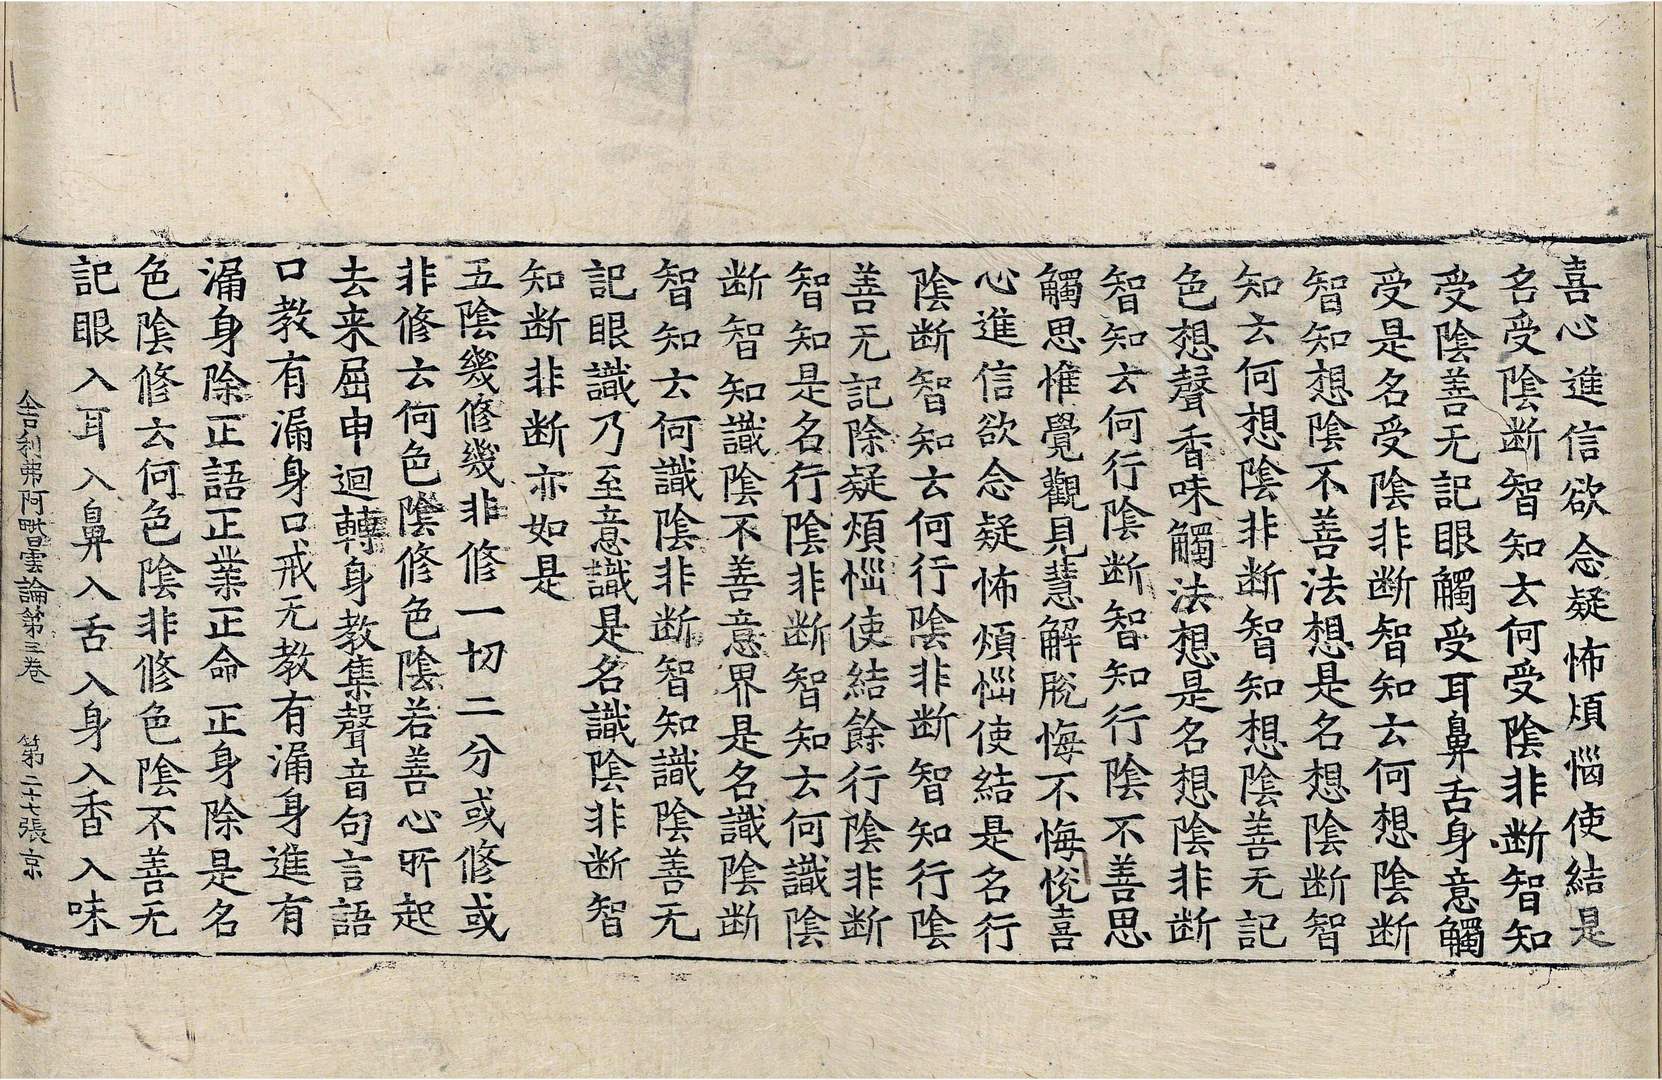 喜心進信欲念疑怖煩惱使結是
名受陰断智知云何受陰非断智知
受陰善无記眼觸受耳鼻舌身意觸
受是名受陰非断智知云何想陰断
智知想陰不善法想是名想陰断智
知云何想陰非断智知想陰善无記
色想聲香味觸法想是名想陰非断
智知云何行陰断智知行陰不善思
觸思惟覺觀見慧解脫悔不悔悅喜
心進信欲念疑怖煩惱使結是名行
陰断智知云何行陰非断智知行陰
善无記除疑煩惱使結餘行陰非断
智知是名行陰非断智知云何識陰
断智知識陰不善意界是名識陰断
智知云何識陰非断智知識陰善无
記眼識乃至意識是名識陰非断智
知断非断亦如是
五陰幾修幾非修一切二分或修或
非修云何色陰修色陰若善心所起
去来屈申迴轉身教集聲音句言語
口教有漏身口戒无教有漏身進有
漏身除正語正業正命正身除是名
色陰修云何色陰非修色陰不善无
記眼入耳入鼻入舌入身入香入味
舎利弗阿毗曇論第三卷 第二十七張 京